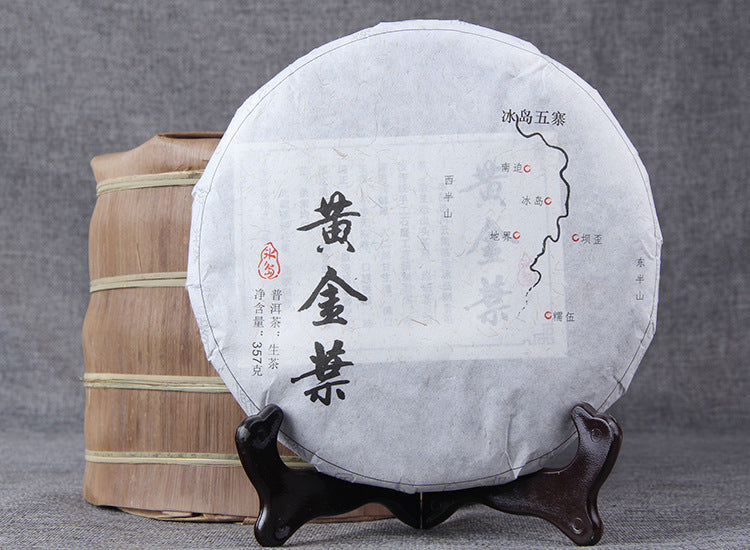 冰岛五寨
南迫
冰岛
地界
坝歪
糯伍
西半山
东半山
黄金葉
冰岛
普洱茶：生茶
净含量：357克